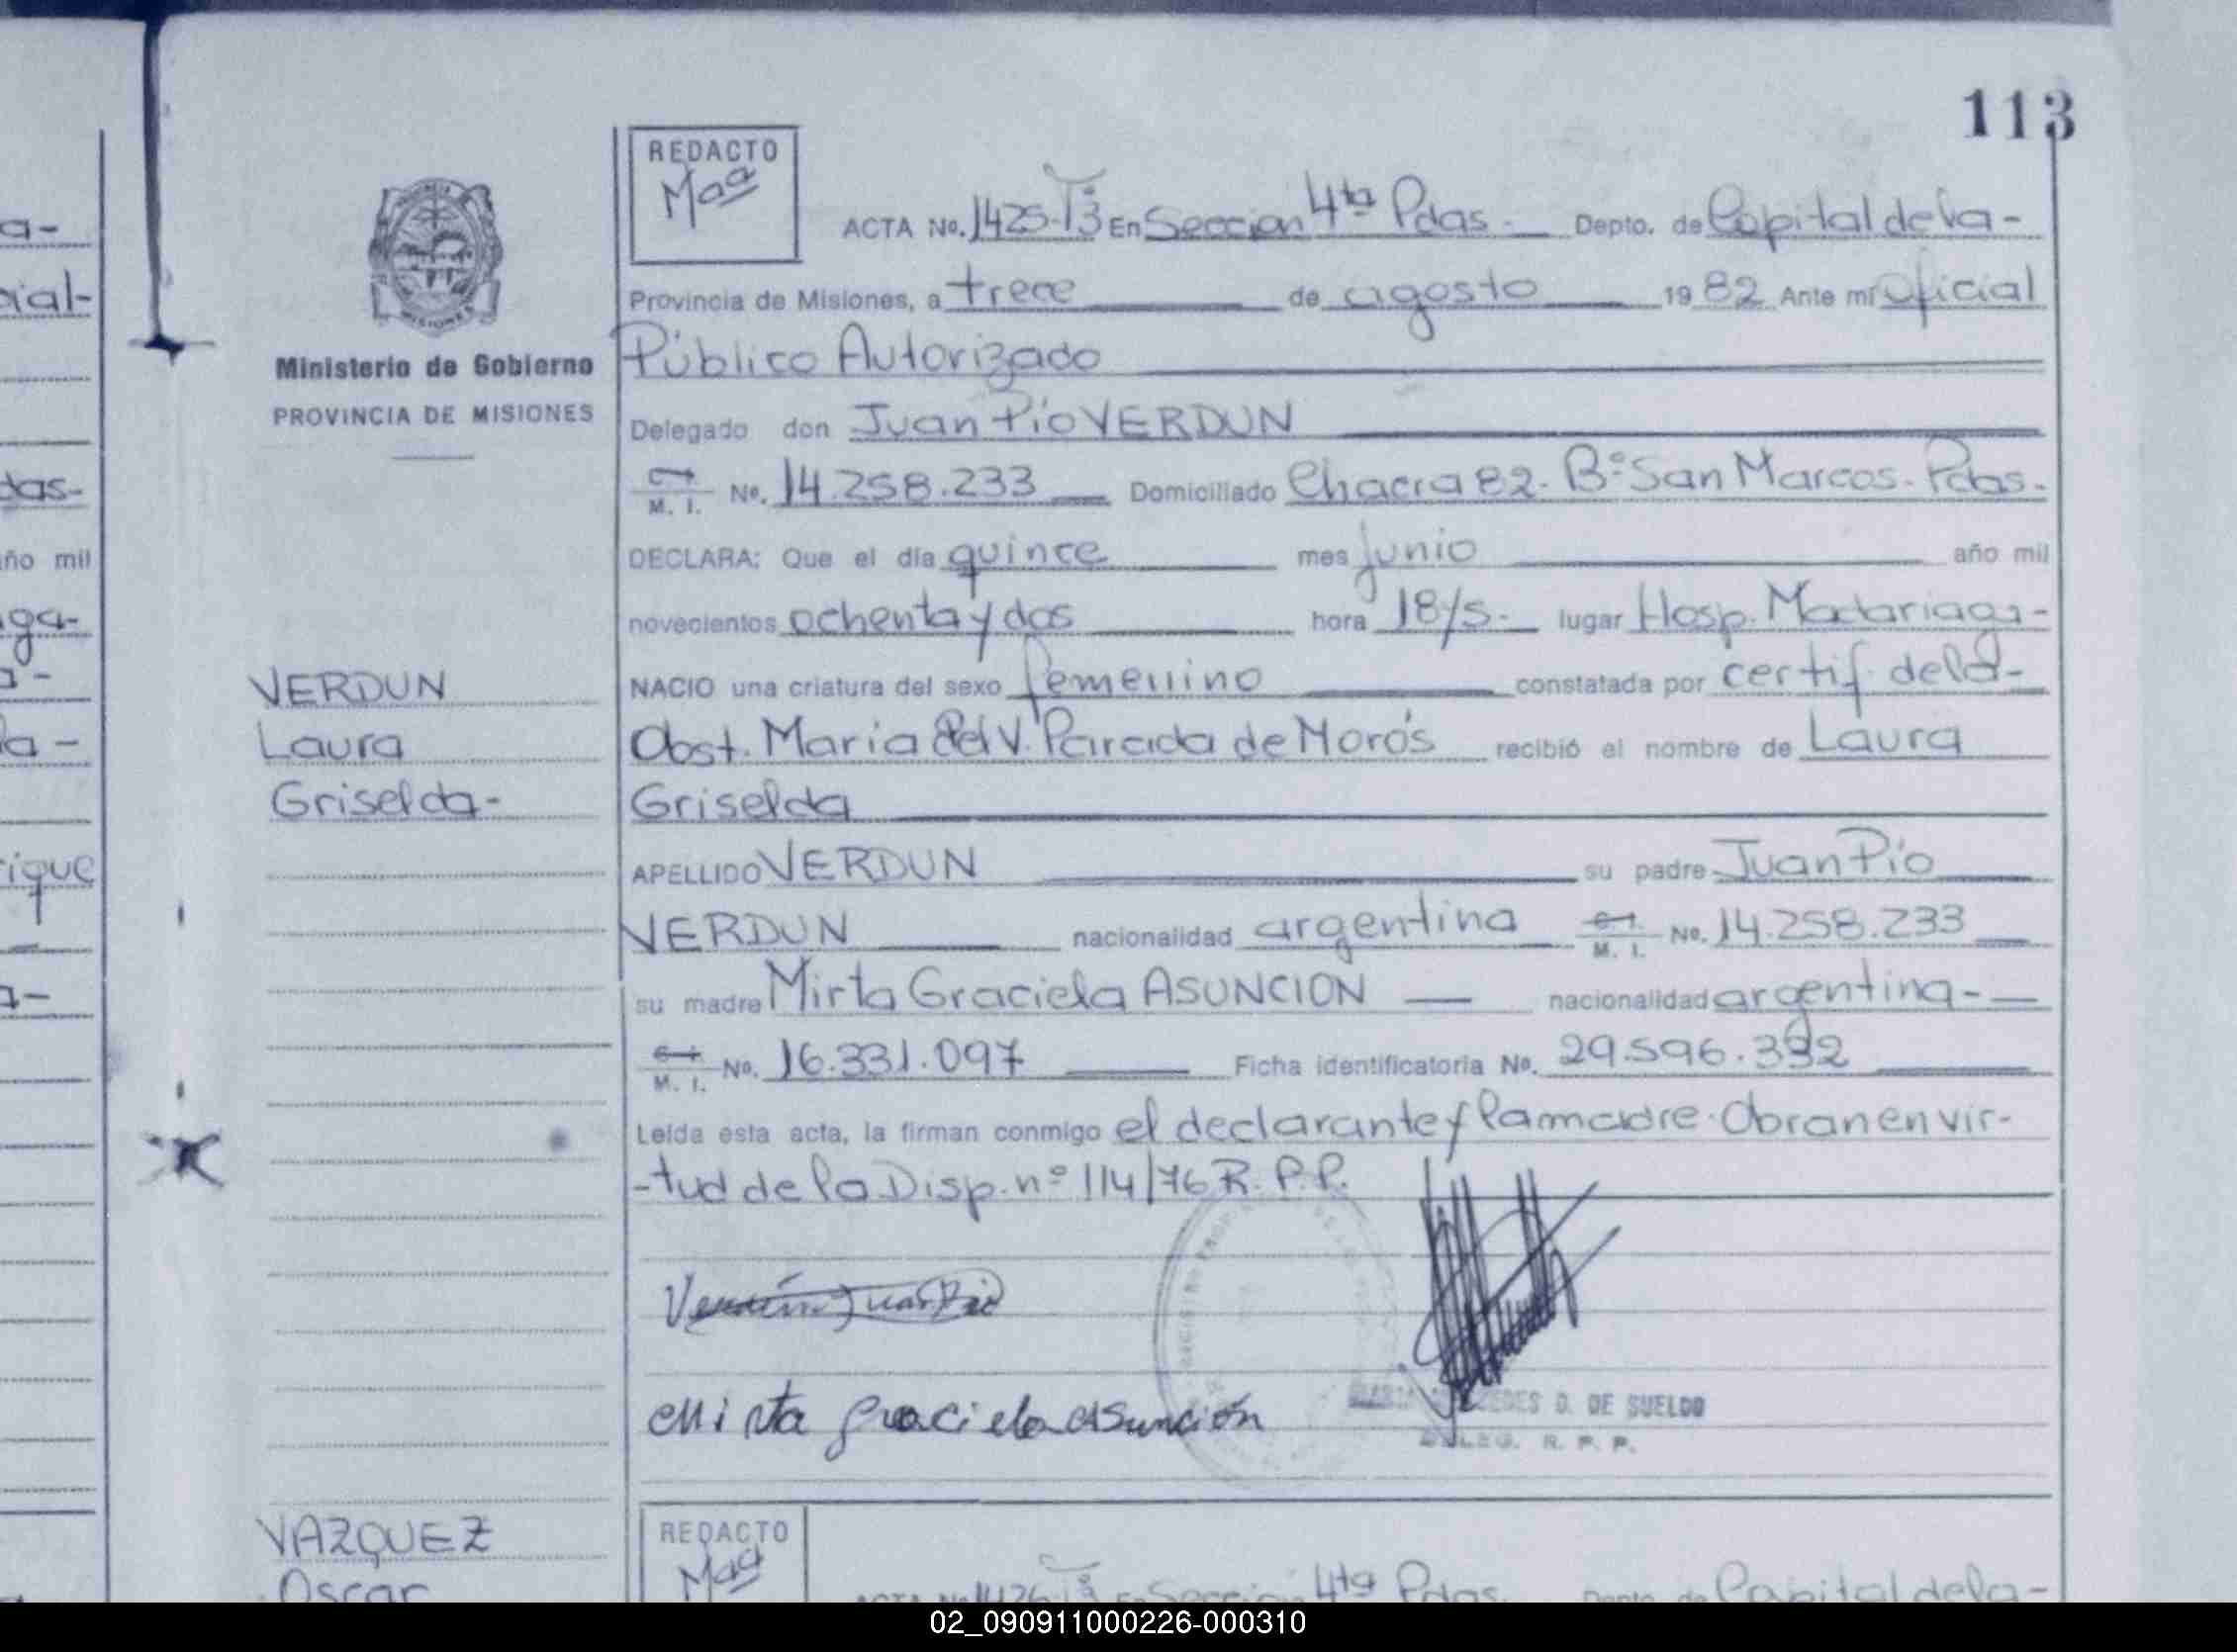 113
REDACTO
Maa
ACTA No. 1425-T3 En Seccion 4ta Pdas.- Depto. de Capital de la-
Provincia de Misiones, a trece de agosto 1982 Ante mí Oficial
Público Autorizado
Ministerio de Gobierno
PROVINCIA DE MISIONES
Delegado don Juan Pío VERDUN
M. I. No. 14.258.233 Domiciliado Chacra 82. Bº San Marcos. Pdas.
DECLARA: Que el día quince mes junio año mil
novecientos ochenta y dos hora 18/5.- lugar Hosp. Madariaga-
VERDUN
Laura
Griselda-
NACIO una criatura del sexo femenino constatada por certif. de la-
Obst. Maria del V. Parada de Morós recibió el nombre de Laura
Griselda
APELLIDO VERDUN su padre Juan Pío
VERDUN nacionalidad argentina M. I. No. 14.258.233
su madre Mirta Graciela ASUNCION nacionalidad argentina-
M. I. No. 16.331.097 Ficha identificatoria No. 29.596.392
Leída esta acta, la firman conmigo el declarante y la madre. Obran en vir-
-tud de la Disp. nº 114/76 R. P. P.
Verdún Juan Pio
Mirta graciela asunción
D. DE SUELDO
R. P. P.
VAZQUEZ
Oscar
REDACTO
Maa
ACTA No. 1426-T3 En Sección 4ta Pdas. Depto. de Capital de la-
a-
cial-
das-
año mil
ga-
a-
la-
rique
a-
02_090911000226-000310